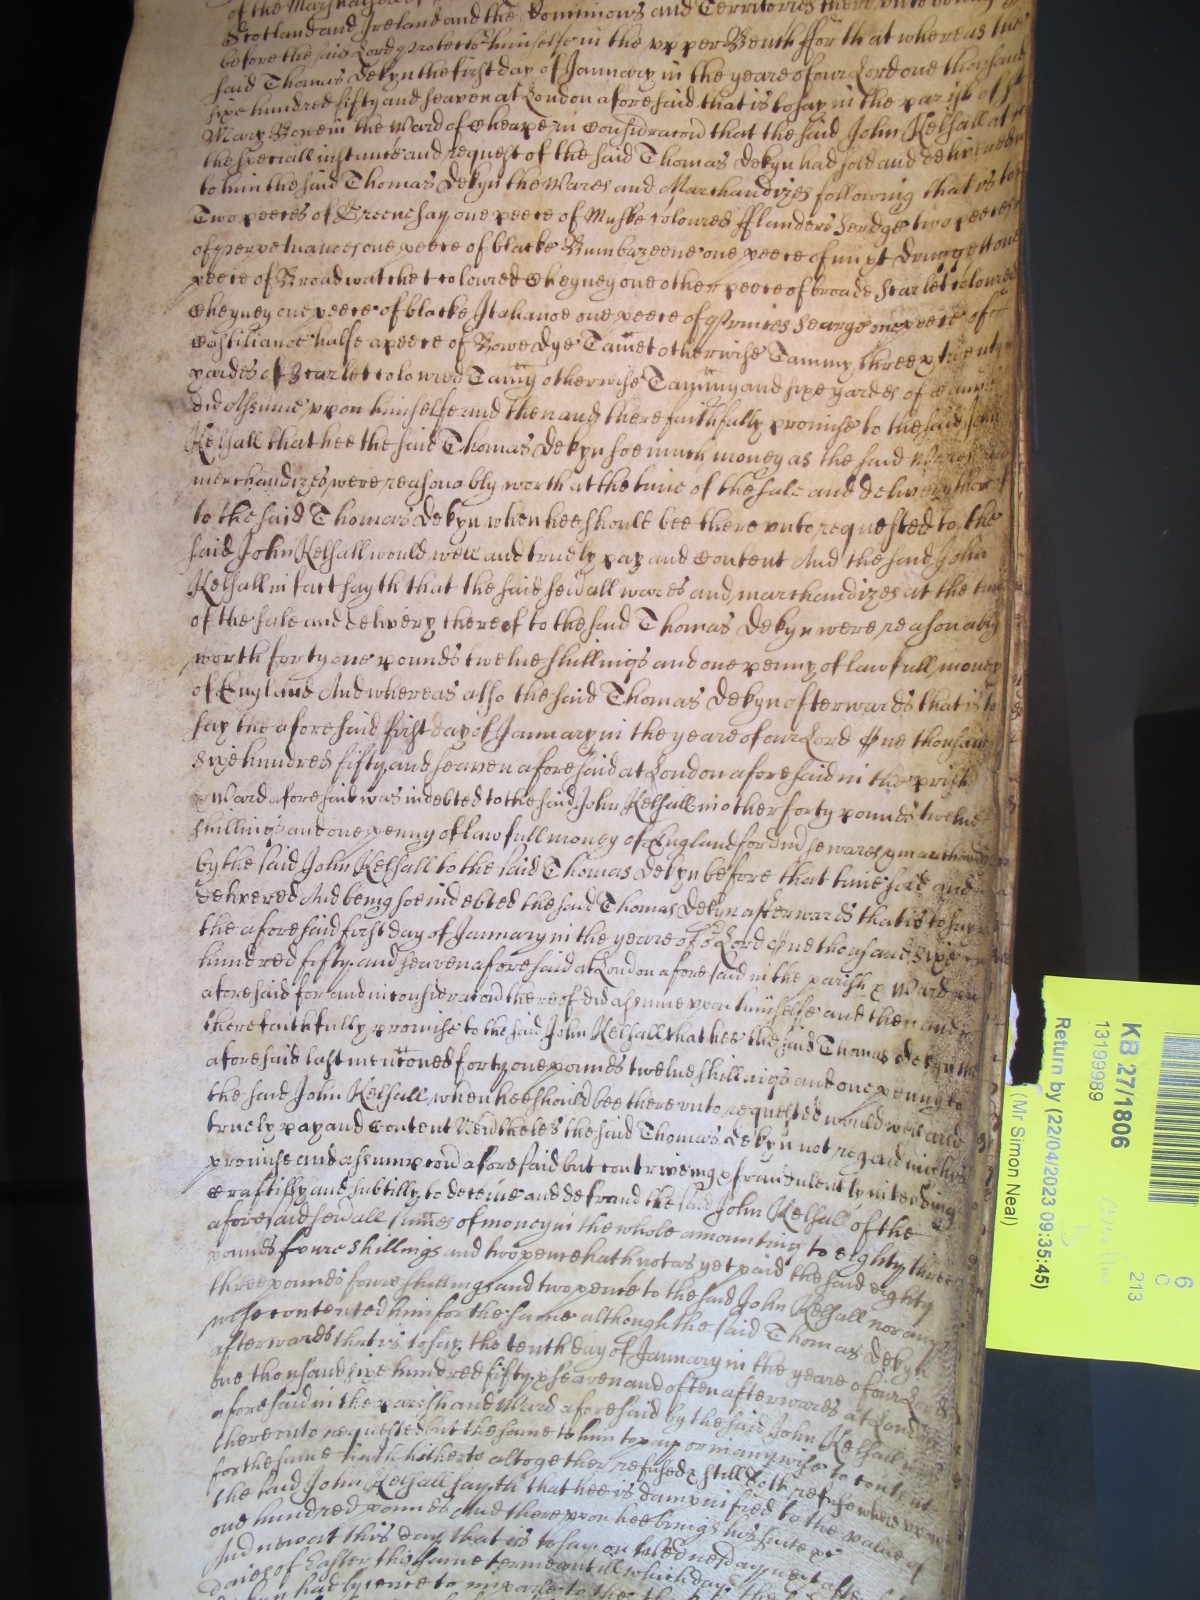 of the Marshalsea
Scotland and Ireland and the Dominions and Territories there vnto
before the said Lord Protector himselfe in the vpper Bench ffor that whereas the
said Thomas Dekyn the first day of January in the yeare of our Lord one thousand
sixe hundred fifty and seaven at London aforesaid that is to say in the parish of St
Mary Bowe in the Ward of Cheape in Consideracion that the said John Kelsall at
the speciall instance and request of the said Thomas Dekyn had sold and delivered
to him the said Thomas Dekyn the Wares and Marchandizes following that is to
Two peeces of Greene say one peece of Muske coloured fflanders Serdge two peeces
of perpetuances one peece of blacke Bumbazeene one peece of mixt Druggett one
peece of Broad watchet coloured Cheyney one other peece of broade Scarlet coloured
Cheyney one peece of blacke Italianoe one peece of Princes Searge one peece of
Castilianoe halfe a peece of Bowe Dye Tamet otherwise Tammy three & twenty
yardes of Scarlet coloured Tamy otherwise Tammy and sixe yardes of
did Assume vpon himselfe and then and there faithfully promise to the said John
Kelsall that hee the said Thomas Dekyn soe much money as the said Wares and
merchandizes were reasonably worth at the time of the sale and delivery thereof
to the said Thomas Dekyn when hee should bee there vnto requested to the
said John Kelsall would well and truely pay and Content And the said John
Kelsall in fact sayth that the said seuall wares and marchandizes at the time
of the sale and delivery thereof to the said Thomas Dekyn were reasonably
worth forty one pounds twelue shillings and one penny of lawfull money
of England And whereas also the said Thomas Dekyn afterwards that is to
say the aforesaid first day of January in the yeare of our Lord One thousand
Sixe hundred fifty and seaven aforesaid at London aforesaid in the parish
& Ward aforesaid was indebted to the said John Kelsall in other forty pounds twelue
shillings and one penny of lawfull money of England for diuse wares & marchandizes
by the said John Kelsall to the said Thomas Dekyn before that time sold and
delivered And being soe indebted the said Thomas Dekyn afterwards that is to say
the aforesaid first day of January in the yeare of or Lord One thousand Sixe
hundred fifty and seaven aforesaid at London aforesaid in the parish & Ward
aforesaid for and in consideracion thereof did assume vpon himselfe and then and
there faithfully promise to the said John Kelsall that hee the said Thomas Dekyn the
aforesaid last mentioned forty one pounds twelue shillings and one penny to
the said John Kelsall when hee should bee there vnto requested would well and
truely pay and Content Neutheles the said Thomas Dekyn not regarding his
promise and assumpcion aforesaid but contriveing & fraudulently intending
Craftilly and subtilly to deceive and defraud the said John Kelsall of the
aforesaid seuall sumes of money in the whole amounting to eighty three
pounds foure shillings and two pence hath not as yet paid the said eighty
three pounds foure shillings and two pence to the said John Kelsall nor any
wise contented him for the same although the said Thomas Dekyn
afterwards that is to say the tenth day of January in the yeare of our Lord
one thousand sixe hundred fifty & seaven and often afterwards at London
aforesaid in the parish and Ward aforesaid by the said John Kelsall was
there vnto requested but the same to him to pay or in any wise to content
for the same hath hitherto altogether refused & still doth refuse wherevpon
the said John Kelsall sayth that hee is dampnified to the value of
one hundred pounds And there vpon hee brings his suite &c
And nowe at this day that is to say on Wednesday next after
daies of Easter this same terme vntill which day the
had lycence to imparle to the
KB 27/1806
13199989
Return by (22/04/2023 09:35:45)
(Mr Simon Neal)
6
C
213